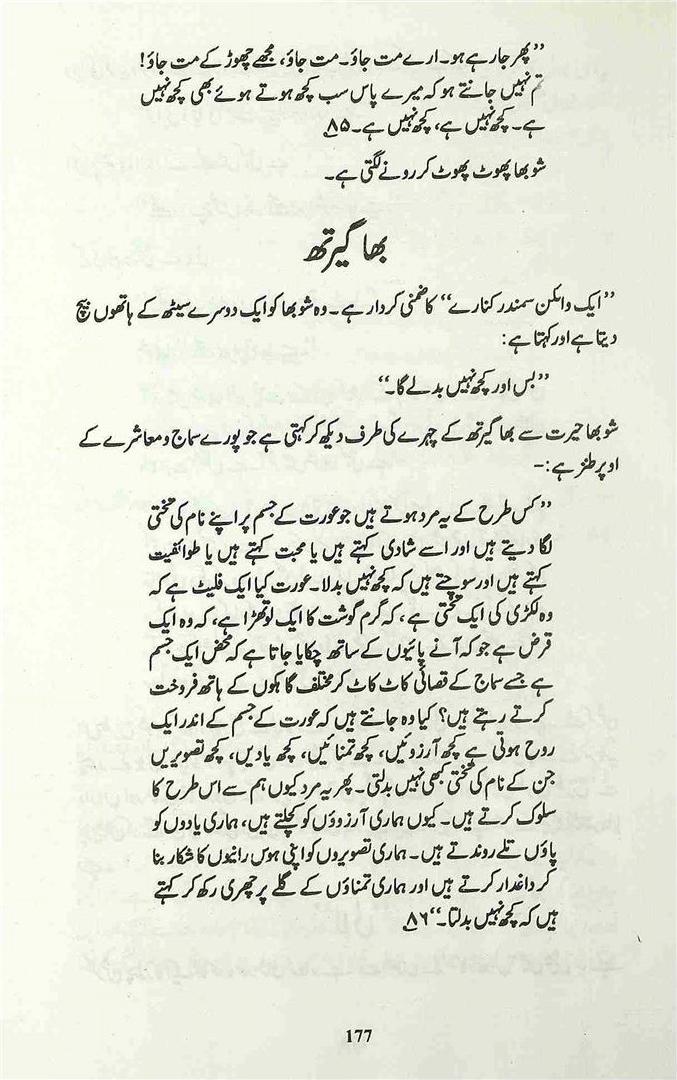 ”پھر جا رہے ہو۔ ارے مت جاؤ۔ مت جاؤ، مجھے چھوڑ کے مت جاؤ!
تم نہیں جانتے ہو کہ میرے پاس سب کچھ ہوتے ہوئے بھی کچھ نہیں
ہے۔ کچھ نہیں ہے، کچھ نہیں ہے۔ ۸۵
شوبھا پھوٹ پھوٹ کر رونے لگتی ہے۔
بھاگیرتھ
”ایک وائلن سمندر کنارے“ کا ضمنی کردار ہے۔ وہ شوبھا کو ایک دوسرے سیٹھ کے ہاتھوں بیچ
دیتا ہے اور کہتا ہے:
”بس اور کچھ نہیں بدلے گا۔“
شوبھا حیرت سے بھاگیرتھ کے چہرے کی طرف دیکھ کر کہتی ہے جو پورے سماج و معاشرے کے
اوپر طنز ہے:-
”کس طرح کے یہ مرد ہوتے ہیں جو عورت کے جسم پر اپنے نام کی تختی
لگا دیتے ہیں اور اسے شادی کہتے ہیں یا محبت کہتے ہیں یا طوائفیت
کہتے ہیں اور سوچتے ہیں کہ کچھ نہیں بدلا۔ عورت کیا ایک فلیٹ ہے کہ
وہ لکڑی کی ایک تختی ہے، کہ گرم گوشت کا ایک لوتھڑا ہے، کہ وہ ایک
قرض ہے جو کہ آنے پائیوں کے ساتھ چکایا جاتا ہے کہ محض ایک جسم
ہے جسے سماج کے قصائی کاٹ کاٹ کر مختلف گاہکوں کے ہاتھ فروخت
کرتے رہتے ہیں؟ کیا وہ جانتے ہیں کہ عورت کے جسم کے اندر ایک
روح ہوتی ہے کچھ آرزوئیں، کچھ تمنائیں، کچھ یادیں، کچھ تصویریں
جن کے نام کی تختی بھی نہیں بدلتی۔ پھر یہ مرد کیوں ہم سے اس طرح کا
سلوک کرتے ہیں۔ کیوں ہماری آرزوؤں کو کچلتے ہیں، ہماری یادوں کو
پاؤں تلے روندتے ہیں۔ ہماری تصویروں کو اپنی ہوس رانیوں کا شکار بنا
کر داغدار کرتے ہیں اور ہماری تمناؤں کے گلے پر چھری رکھ کر کہتے
ہیں کہ کچھ نہیں بدلتا۔“ ۸۶
177